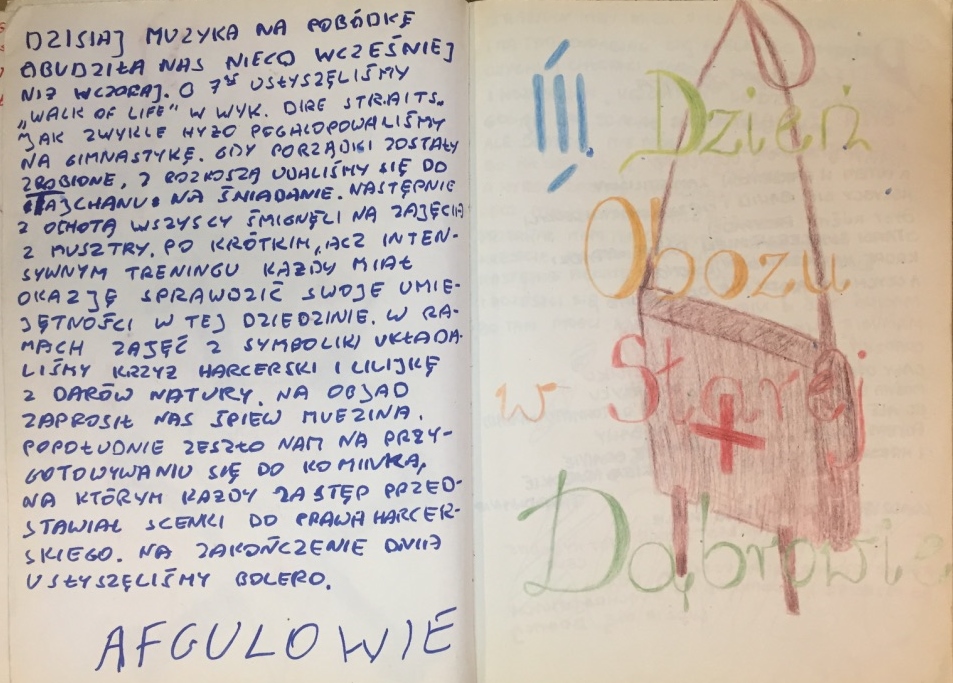 DZISIAJ MUZYKA NA POBÓDKĘ
OBUDZIŁA NAS NIECO WCZEŚNIEJ
NIŻ WCZORAJ. O 7¹⁵ USŁYSZĘLIŚMY
„WALK OF LIFE" W WYK. DIRE STRAITS.
JAK ZWYKLE HYŻO POGALOPOWALIŚMY
NA GIMNASTYKĘ. GDY PORZĄDKI ZOSTAŁY
ZROBIONE, Z ROZKOSZĄ UDALIŚMY SIĘ DO
TAJCHANU NA ŚNIADANIE. NASTĘPNIE
Z OCHOTĄ WSZYSCY ŚMIGNĘLI NA ZAJĘCIA
Z MUSZTRY. PO KRÓTKIM, ACZ INTEN-
SYWNYM TRENINGU KAŻDY MIAŁ
OKAZJĘ SPRAWDZIĆ SWOJE UMIE-
JĘTNOŚCI W TEJ DZIEDZINIE. W RA-
MACH ZAJĘĆ Z SYMBOLIKI UKŁADA-
LIŚMY KRZYŻ HARCERSKI I LILIJKĘ
Z DARÓW NATURY. NA OBJAD
ZAPROSIŁ NAS ŚPIEW MUEZINA.
POPOŁUDNIE ZESZŁO NAM NA PRZY-
GOTOWYWANIU SIĘ DO KOMINKA,
NA KTÓRYM KAŻDY ZASTĘP PRZED-
STAWIAŁ SCENKI DO PRAWA HARCER-
SKIEGO. NA ZAKOŃCZENIE DNIA
USŁYSZĘLIŚMY BOLERO.
AFGULOWIE
III. Dzień
Obozu
w Starej
Dąbrowie